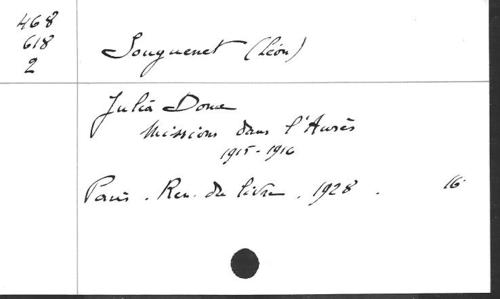 468
618
2
Souguenet (Léon)
Julia Dome
Missions dans l'Aurès
1915-1916
Paris. Ren. du livre. 1928. 16